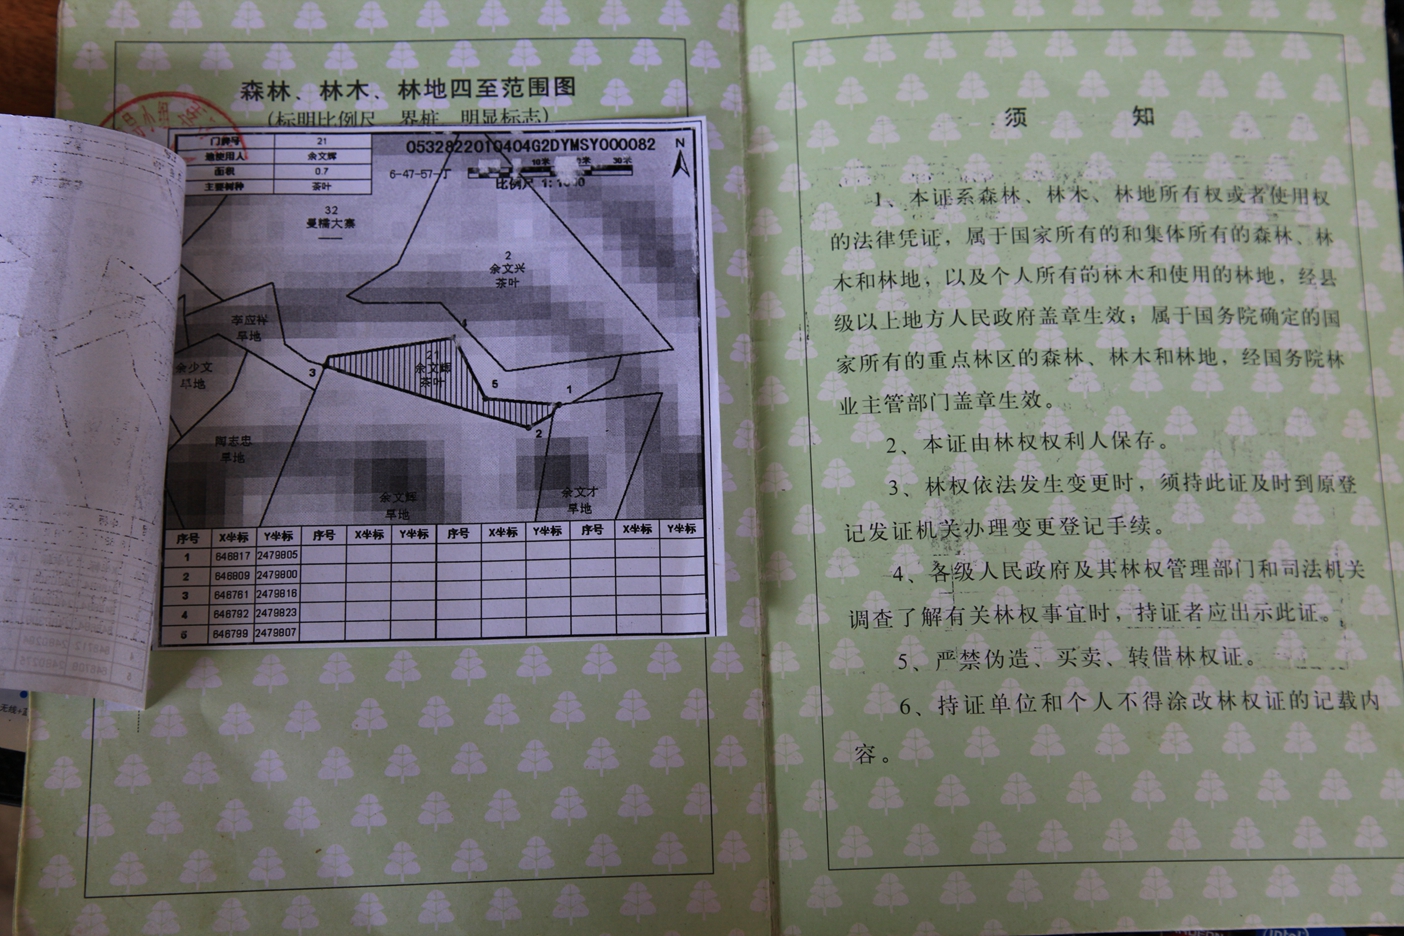 森林、林木、林地四至范围图
(标明比例尺、界桩、明显标志)
门牌号 21
地使用人 余文辉
面积 0.7
主要树种 茶叶
0532822010404G2DYMSY000082
6-47-57-丁
10米 30米
比例尺 1:
N
32
曼糯大寨
2
余文兴
茶叶
李应祥
旱地
余少文
旱地
21
余文辉
茶叶
4
3
5
1
2
陶志忠
旱地
余文辉
旱地
余文才
旱地
序号 X坐标 Y坐标 序号 X坐标 Y坐标 序号 X坐标 Y坐标 序号 X坐标 Y坐标
1 646817 2479805
2 646809 2479800
3 646761 2479816
4 646792 2479823
5 646799 2479807
须 知
1、本证系森林、林木、林地所有权或者使用权
的法律凭证，属于国家所有的和集体所有的森林、林
木和林地，以及个人所有的林木和使用的林地，经县
级以上地方人民政府盖章生效；属于国务院确定的国
家所有的重点林区的森林、林木和林地，经国务院林
业主管部门盖章生效。
2、本证由林权权利人保存。
3、林权依法发生变更时，须持此证及时到原登
记发证机关办理变更登记手续。
4、各级人民政府及其林权管理部门和司法机关
调查了解有关林权事宜时，持证者应出示此证。
5、严禁伪造、买卖、转借林权证。
6、持证单位和个人不得涂改林权证的记载内
容。